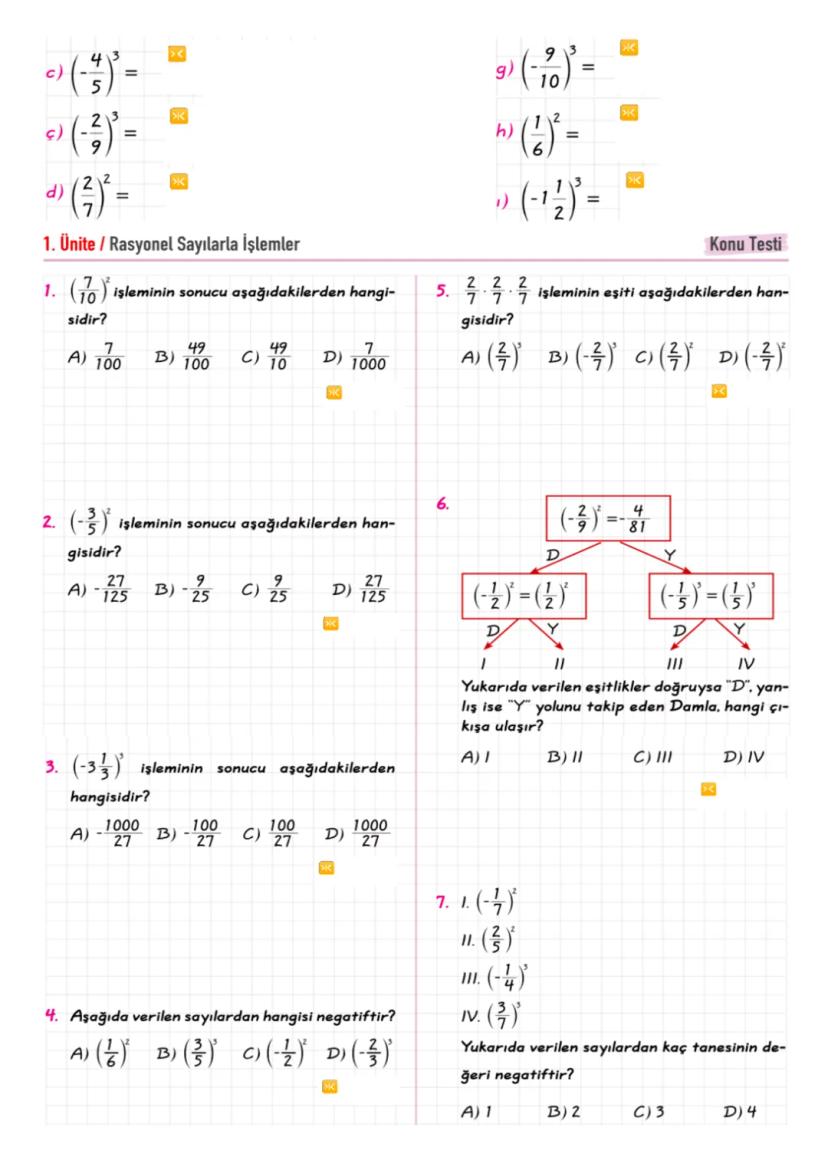 c) (-4/5)³ =
ç) (-2/9)³ =
d) (2/7)² =
g) (-9/10)³ =
h) (1/6)² =
ı) (-1 1/2)³ =
1. Ünite / Rasyonel Sayılarla İşlemler
Konu Testi
1. (7/10)² işleminin sonucu aşağıdakilerden hangi-
sidir?
A) 7/100 B) 49/100 C) 49/10 D) 7/1000
2. (-3/5)² işleminin sonucu aşağıdakilerden han-
gisidir?
A) -27/125 B) -9/25 C) 9/25 D) 27/125
3. (-3 1/3)³ işleminin sonucu aşağıdakilerden
hangisidir?
A) -1000/27 B) -100/27 C) 100/27 D) 1000/27
4. Aşağıda verilen sayılardan hangisi negatiftir?
A) (1/6)² B) (3/5)³ C) (-1/2)² D) (-2/3)³
5. 2/7 · 2/7 · 2/7 işleminin eşiti aşağıdakilerden han-
gisidir?
A) (2/7)³ B) (-2/7)³ C) (2/7)² D) (-2/7)²
6.
(-2/9)² = -4/81
D Y
(-1/2)² = (1/2)² (-1/5)³ = (1/5)³
D Y D Y
I II III IV
Yukarıda verilen eşitlikler doğruysa "D", yan-
lış ise "Y" yolunu takip eden Damla, hangi çı-
kışa ulaşır?
A) I B) II C) III D) IV
7. I. (-1/7)²
II. (2/5)²
III. (-1/4)³
IV. (3/7)³
Yukarıda verilen sayılardan kaç tanesinin de-
ğeri negatiftir?
A) 1 B) 2 C) 3 D) 4